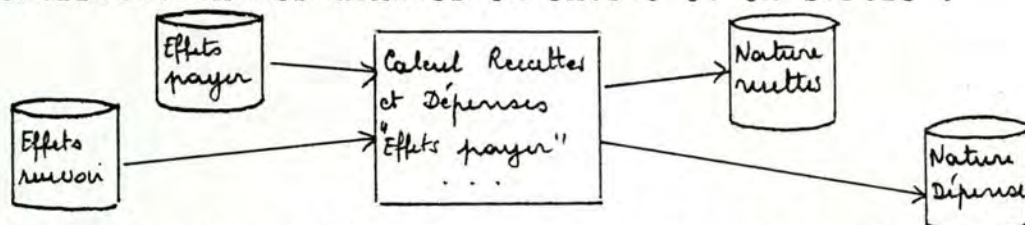 Effets
payer
Effets
recevoir
Calcul Recettes
et Dépenses
"Effets payer"
. . .
Nature
recettes
Nature
Dépense